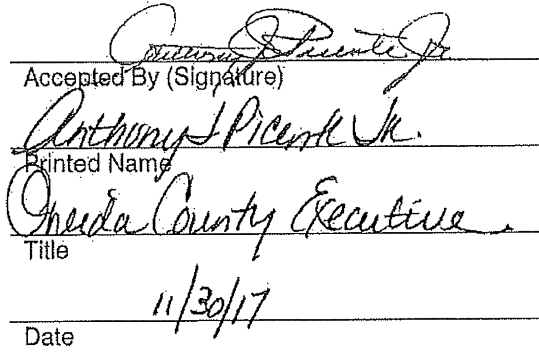 Anthony J Picente Jr.
Accepted By (Signature)
Anthony J Picente Jr.
Printed Name
Oneida County Executive
Title
11/30/17
Date